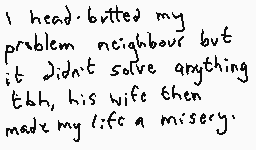 I head-butted my
problem neighbour but
it didn't solve anything
tbh, his wife then
made my life a misery.